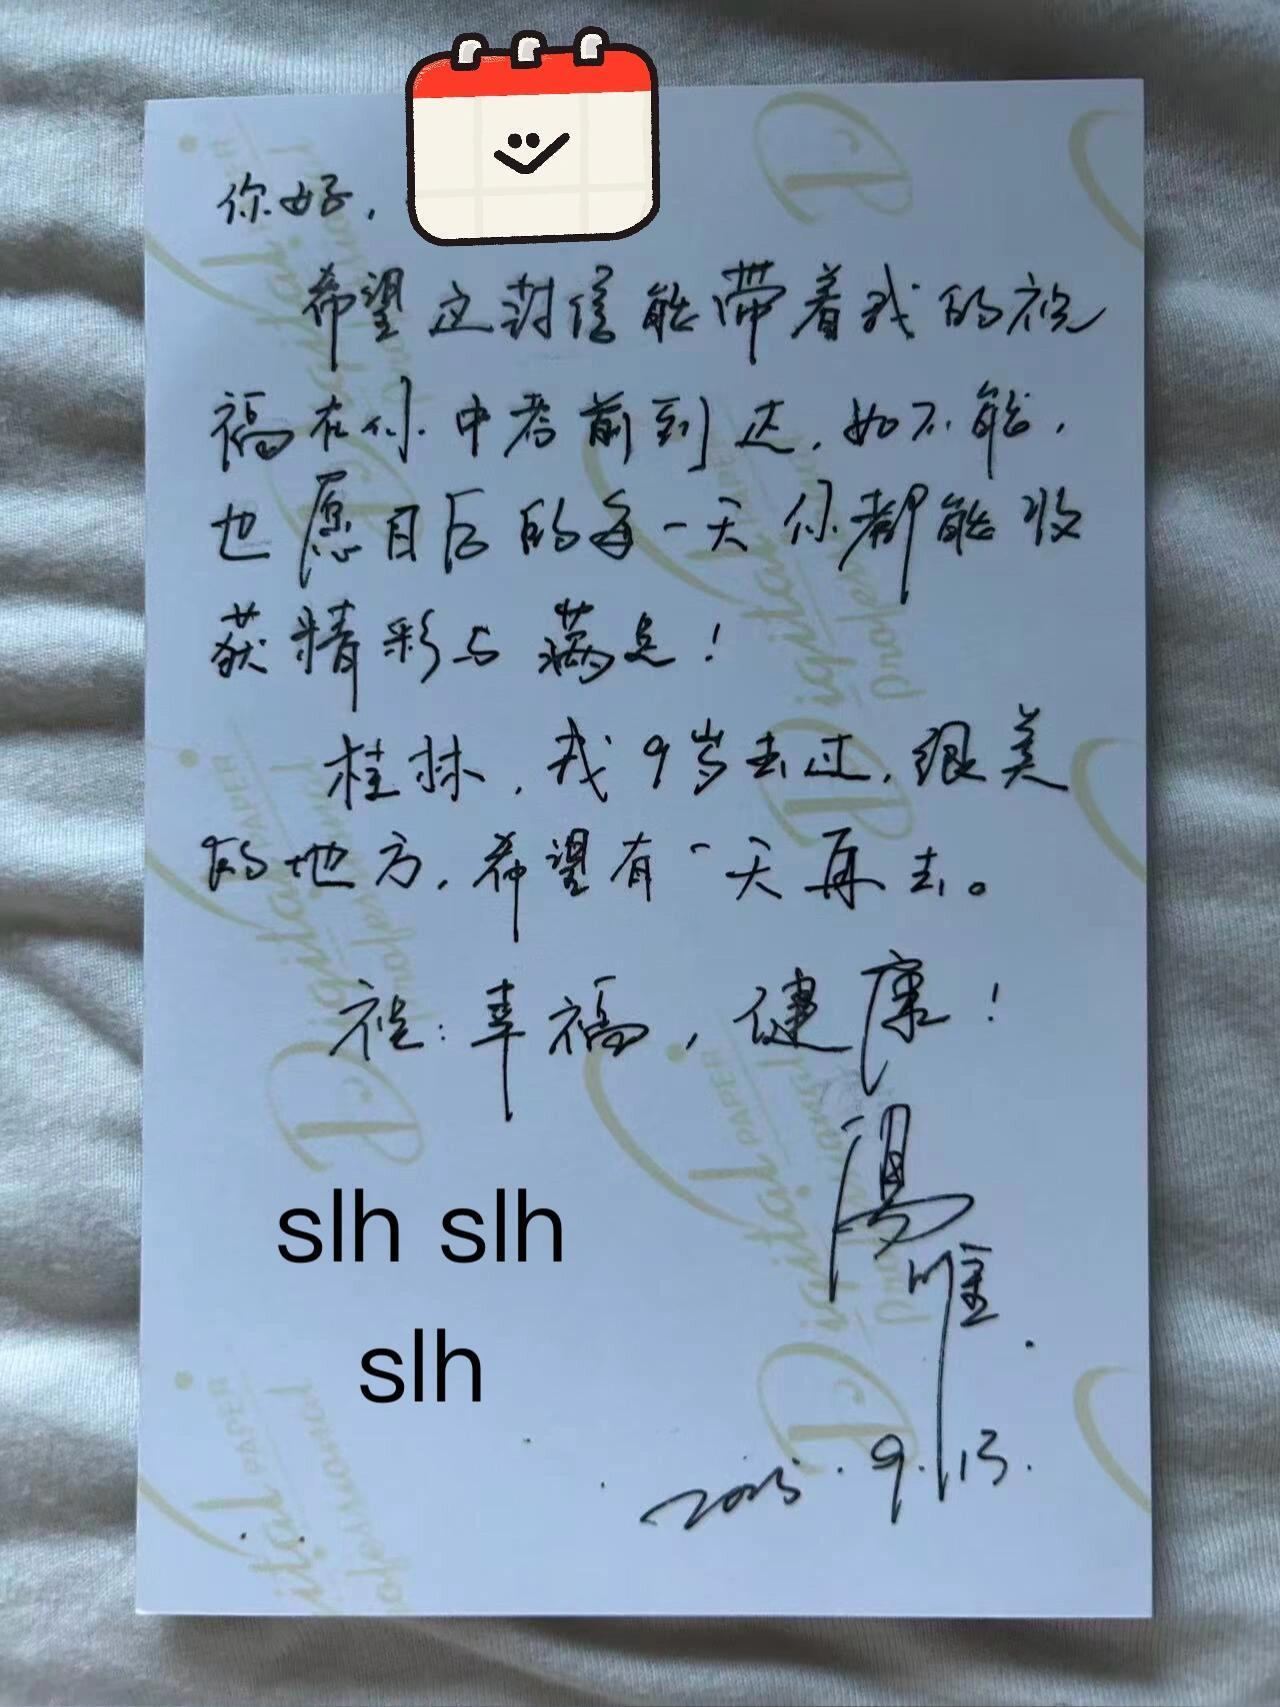 你好,
希望这封信能带着我的祝
福在你中考前到达,如不能,
也愿日后的每一天你都能收
获精彩与满足!
桂林,我9岁去过,很美
的地方,希望有一天再去。
祝:幸福,健康!
slh slh
slh
湯唯
2025.9.13.
Digital PAPER
professional